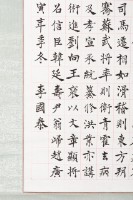 司馬遷相如滑稽則東方朔
騫蘇武將率則衛青霍去病
及孝宣承統纂修洪業亦講
術進劉向王褒以文章顯將
名信臣韓延壽尹翁歸趙廣
寅年季冬 李國